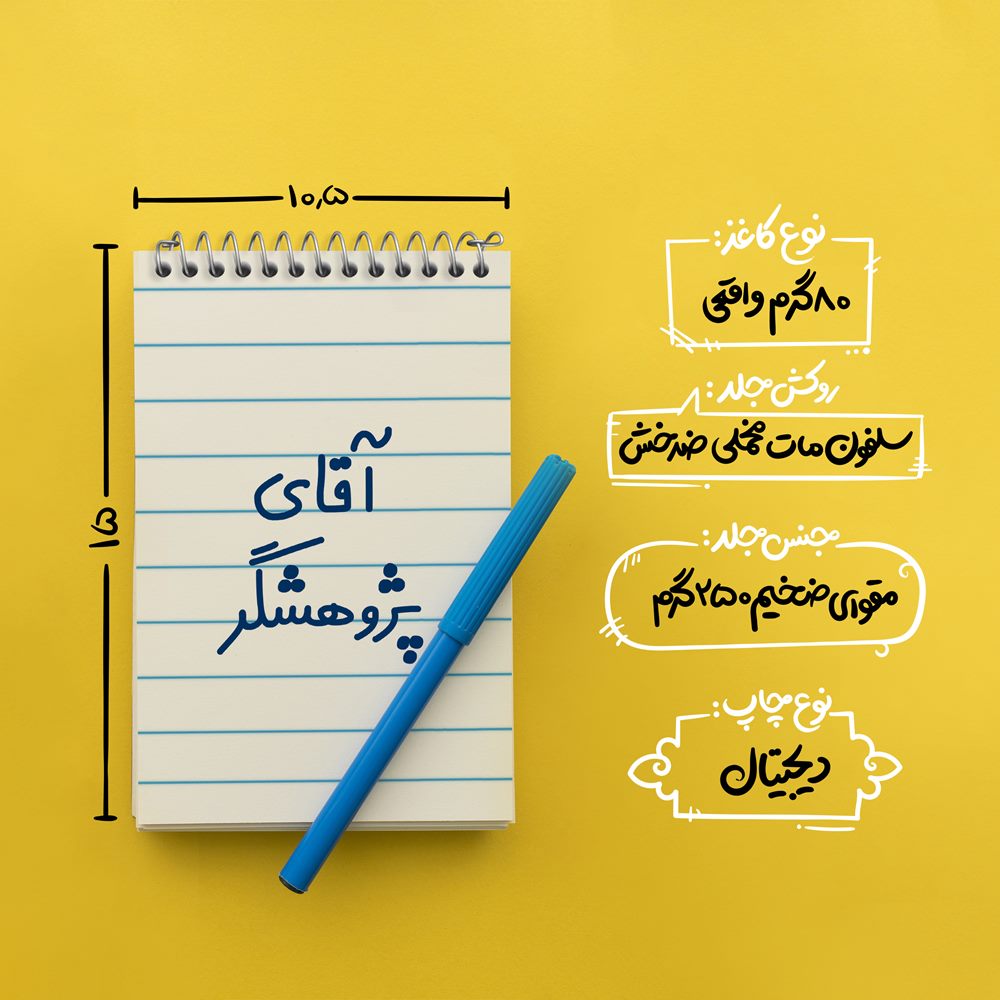 ۱۰٫۵
۱۵
آقای
پژوهشگر
نوع کاغذ:
۸۰گرم واقعی
روکش جلد:
سلفون مات مخملی ضدخش
جنس جلد:
مقوای ضخیم ۲۵۰گرم
نوع چاپ:
دیجیتال